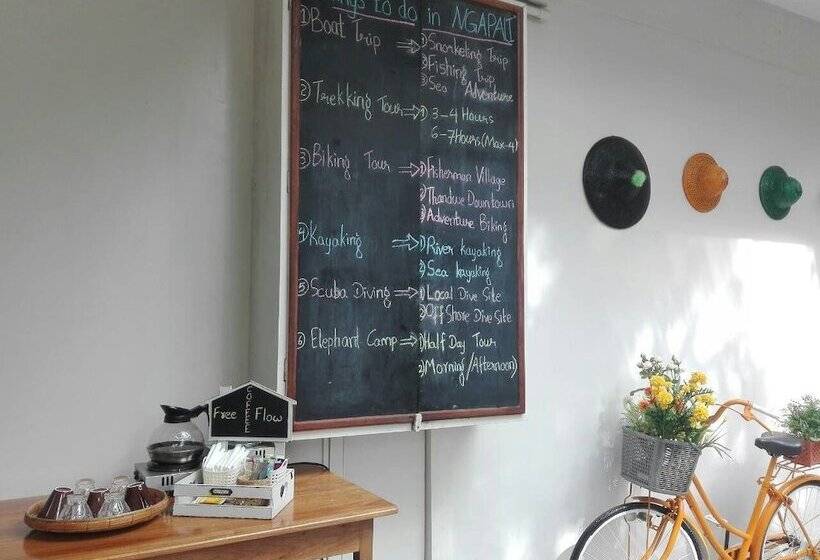 to do in NGAPALI
① Boat Trip ⇒ ① Snorkeling Trip
② Fishing Trip
③ Sea Adventure
② Trekking Tour ⇒ ① 3-4 Hours
6-7Hours(Max-4)
③ Biking Tour ⇒ ① Fisherman Village
② Thandwe Downtown
③ Adventure Biking
④ Kayaking ⇒ ① River kayaking
② Sea kayaking
⑤ Scuba Diving ⇒ ① Local Dive Site
② Off Shore Dive Site
⑥ Elephant Camp ⇒ ① Half Day Tour
② (Morning/Afternoon)
COFFEE
Free Flow